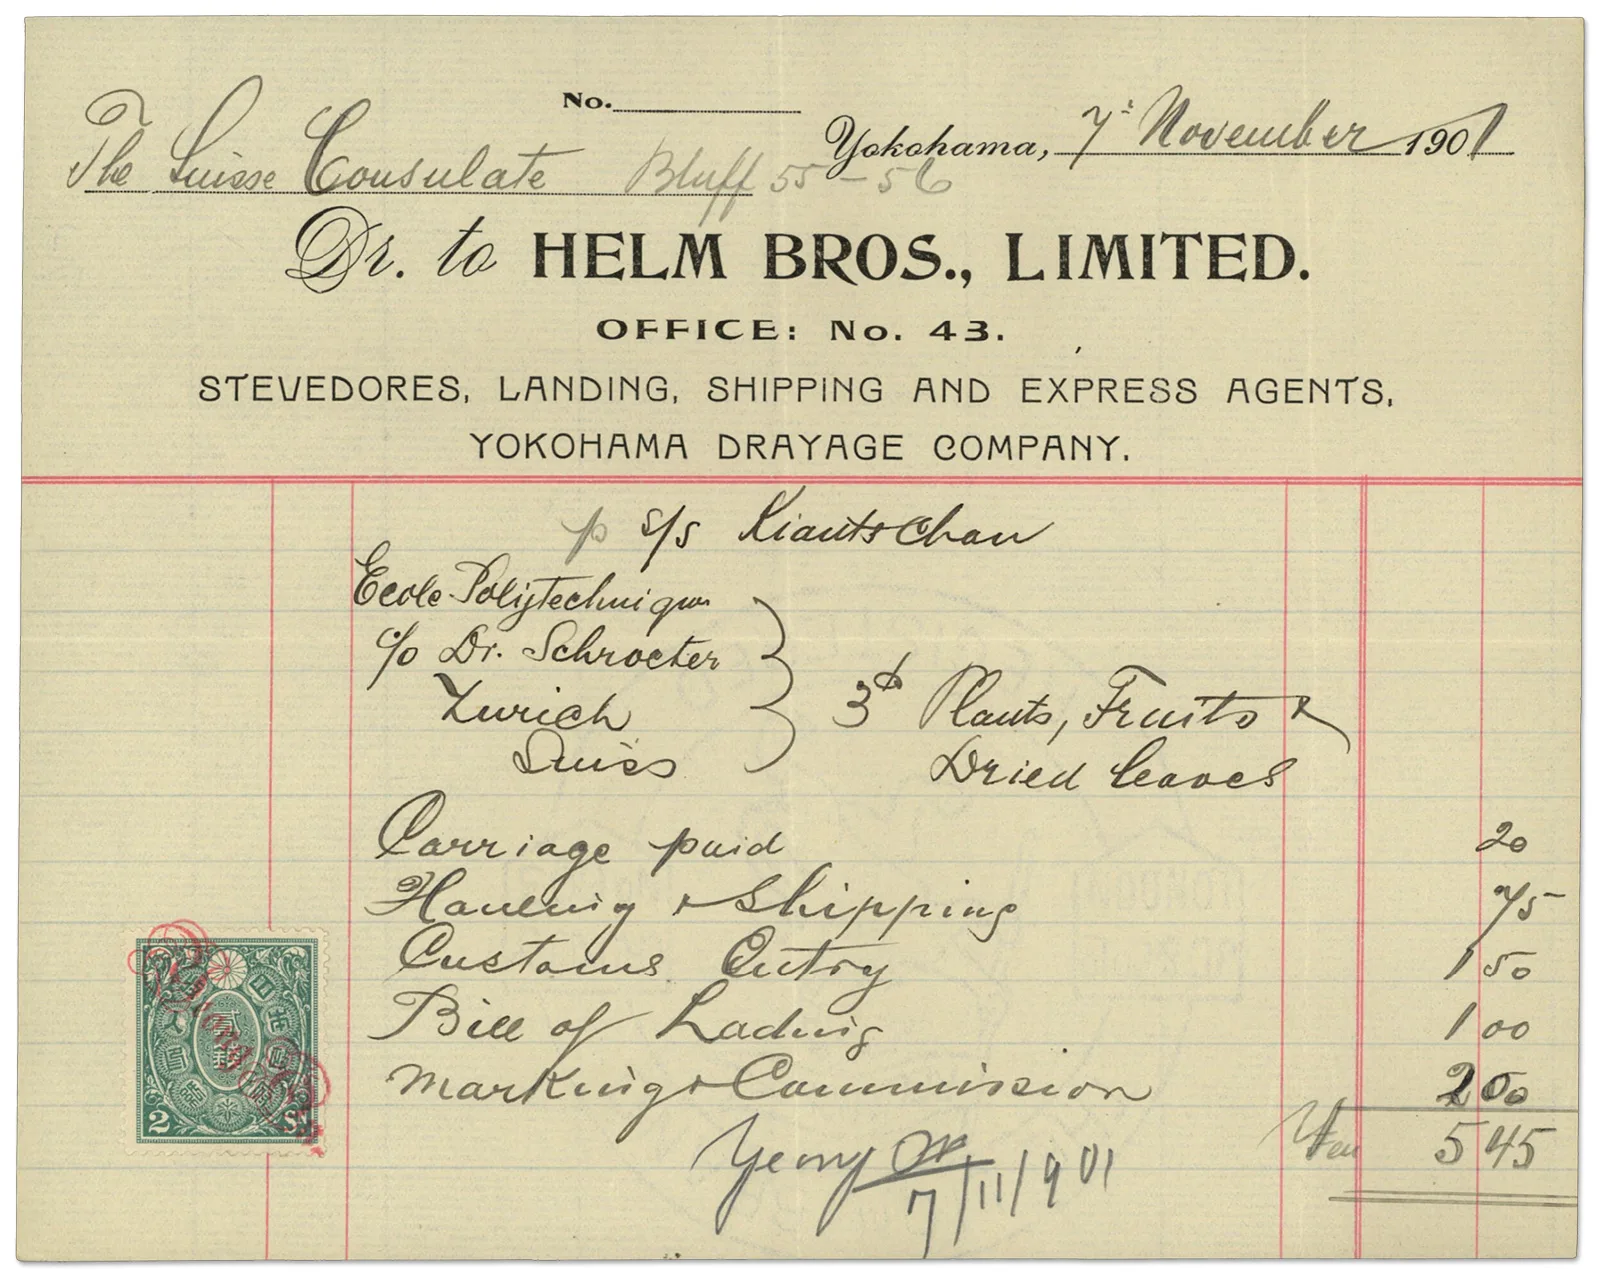 No.
Yokohama, 7th November 1901
The Suisse Consulate Bluff 55-56
Dr. to HELM BROS., LIMITED.
OFFICE: No. 43.
STEVEDORES, LANDING, SHIPPING AND EXPRESS AGENTS,
YOKOHAMA DRAYAGE COMPANY.
p s/s Kiautschau
Ecole Polytechnique
c/o Dr. Schroeter
Zurich
Suiss
3 Plants, Fruits &
Dried leaves
Carriage paid 20
Hauling & Shipping 75
Customs Entry 1 50
Bill of Lading 1 00
Marking & Commission 2 00
Yen 5 45
7/11/901
2 Sn